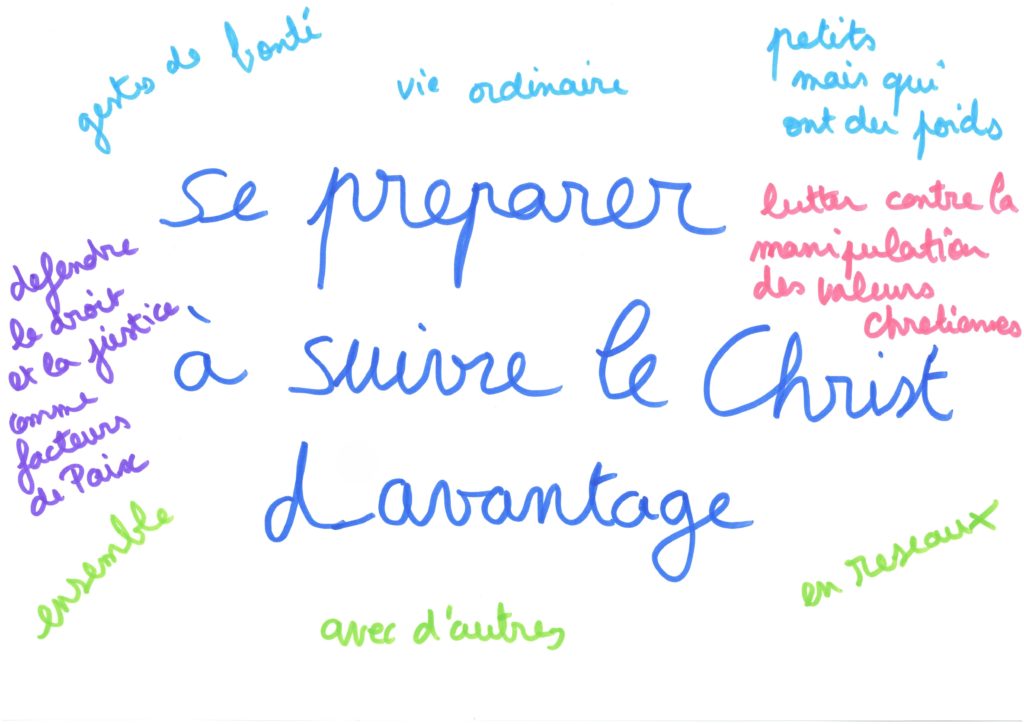 gestes de bonté
vie ordinaire
petits
mais qui
ont du poids
se preparer
à suivre le Christ
davantage
lutter contre la
manipulation
des valeurs
chretiennes
defendre
le droit
et la justice
comme
facteurs
de Paix
ensemble
avec d'autres
en reseaux